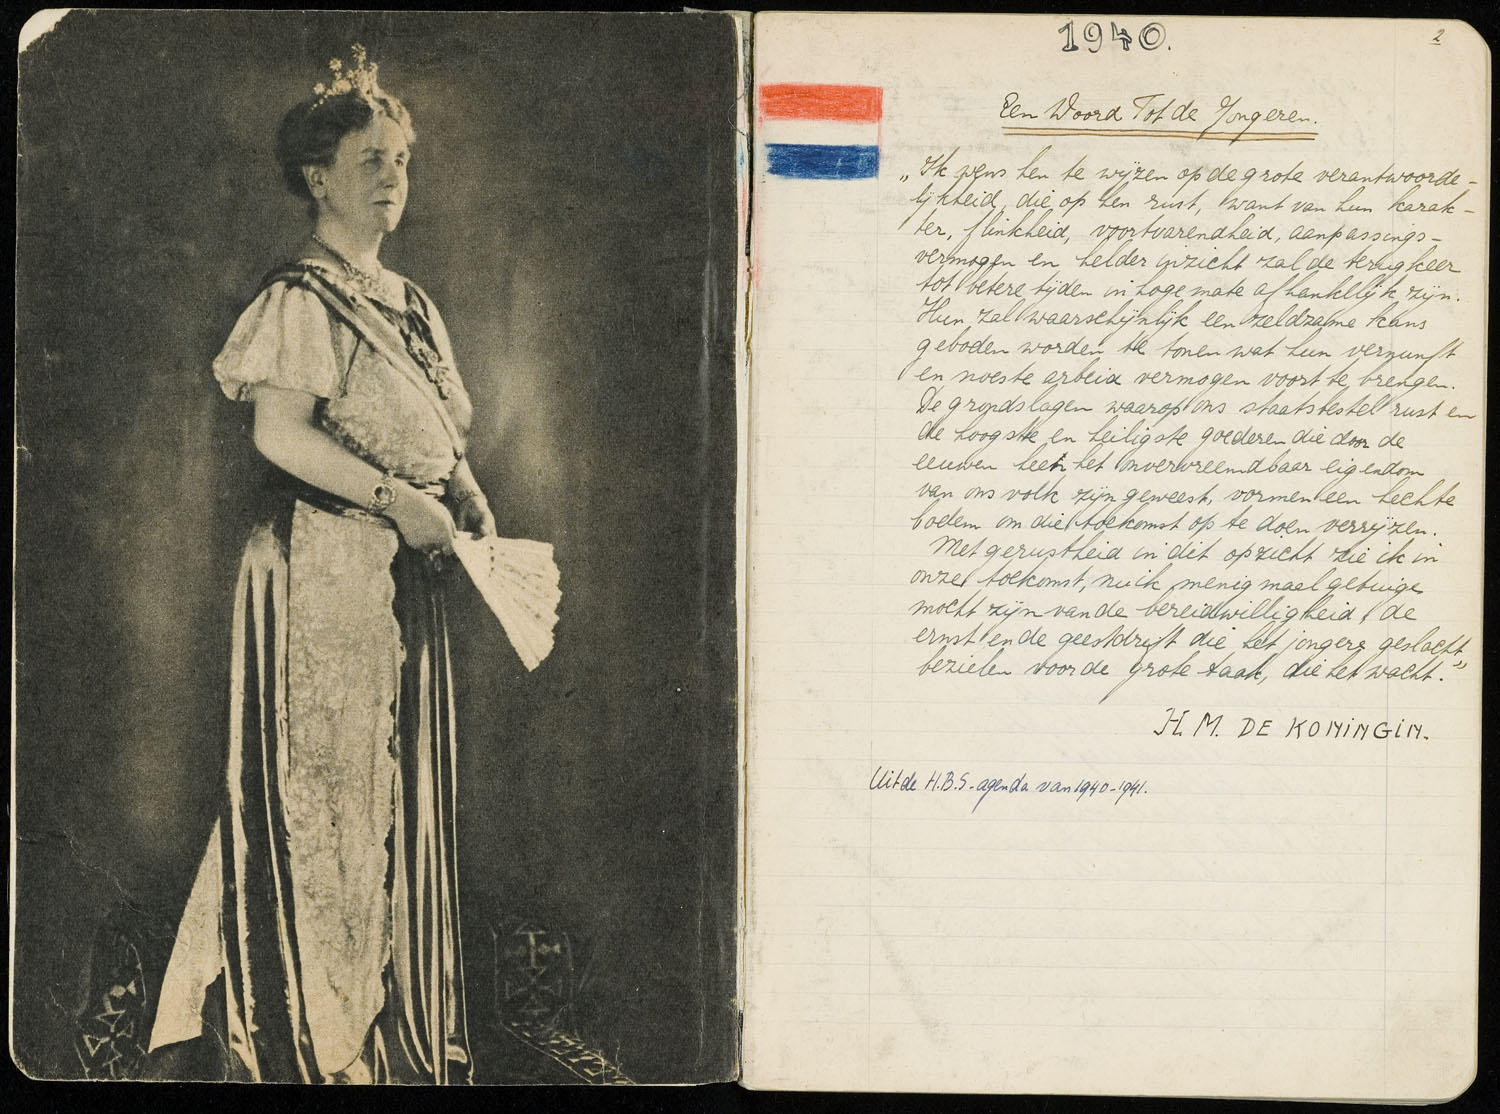 1940.
2
Een Woord Tot de Jongeren.
„Ik wens hen te wijzen op de grote verantwoorde-
lijkheid, die op hen rust, want van hun karak-
ter, flinkheid, voortvarendheid, aanpassings-
vermogen en helder inzicht zal de terugkeer
tot betere tijden in hoge mate afhankelijk zijn.
Hun zal waarschijnlijk een zeldzame kans
geboden worden te tonen wat hun vernunft
en noeste arbeid vermogen voort te brengen.
De grondslagen waarop ons staatsbestel rust en
de hoogste en heiligste goederen die door de
eeuwen heen het onvervreemdbaar eigendom
van ons volk zijn geweest, vormen een hechte
bodem om die toekomst op te doen verrijzen.
Met gerustheid in dit opzicht zie ik in
onze toekomst, nu ik menigmaal getuige
mocht zijn van de bereidwilligheid, de
ernst en de geestdrift die het jongere geslacht
bezielen voor de grote taak, die het wacht.”
H.M. DE KONINGIN.
Uit de H.B.S.-agenda van 1940-1941.